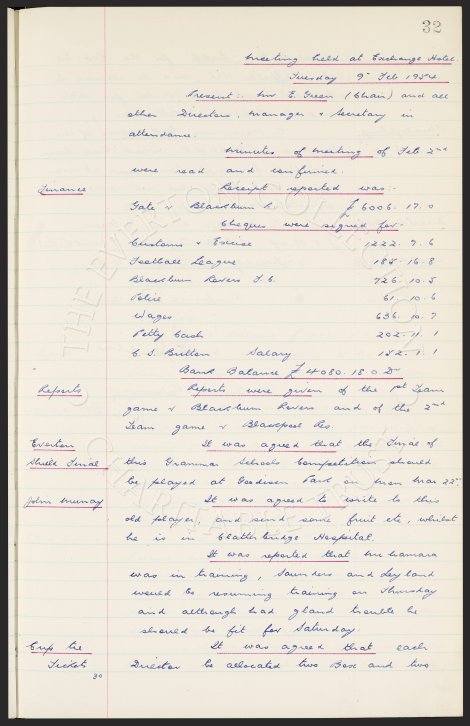 32
Meeting held at Exchange Hotel.
Tuesday 9th Feb 1954.
Present:- Mr E. Green (Chair) and all
other Directors, Manager & Secretary in
attendance.
Minutes of meeting of Feb 2nd
were read and confirmed.
Finance Receipt reported was:-
Gate v Blackburn R. £6006. 17. 0
Cheques were signed for-
Customs & Excise 1222. 9. 6
Football League 185. 16. 8
Blackburn Rovers F.C. 726. 10. 5
Police 61. 10. 6
Wages 636. 10. 7
Petty Cash 202. 11. 1
C. S. Britton Salary 152. 1. 1
Bank Balance £4080. 18. 0 Dr
Reports Reports were given of the 1st Team
game v Blackburn Rovers and of the 2nd
Team game v Blackpool Res.
Everton It was agreed that the Final of
Shield Final this Grammar Schools Competition should
be played at Goodison Park on Mon Mar 22nd
John Murray It was agreed to write to this
old player, and send some fruit etc, whilst
he is in Clatterbridge Hospital.
It was reported that McNamara
was in training, Saunders and Leyland
would be resuming training on Thursday
and although had gland trouble he
should be fit for Saturday.
Cup tie It was agreed that each
Ticket Director be allocated two Box and two
30
THE EVERTON COLLECTION
CHARITABLE